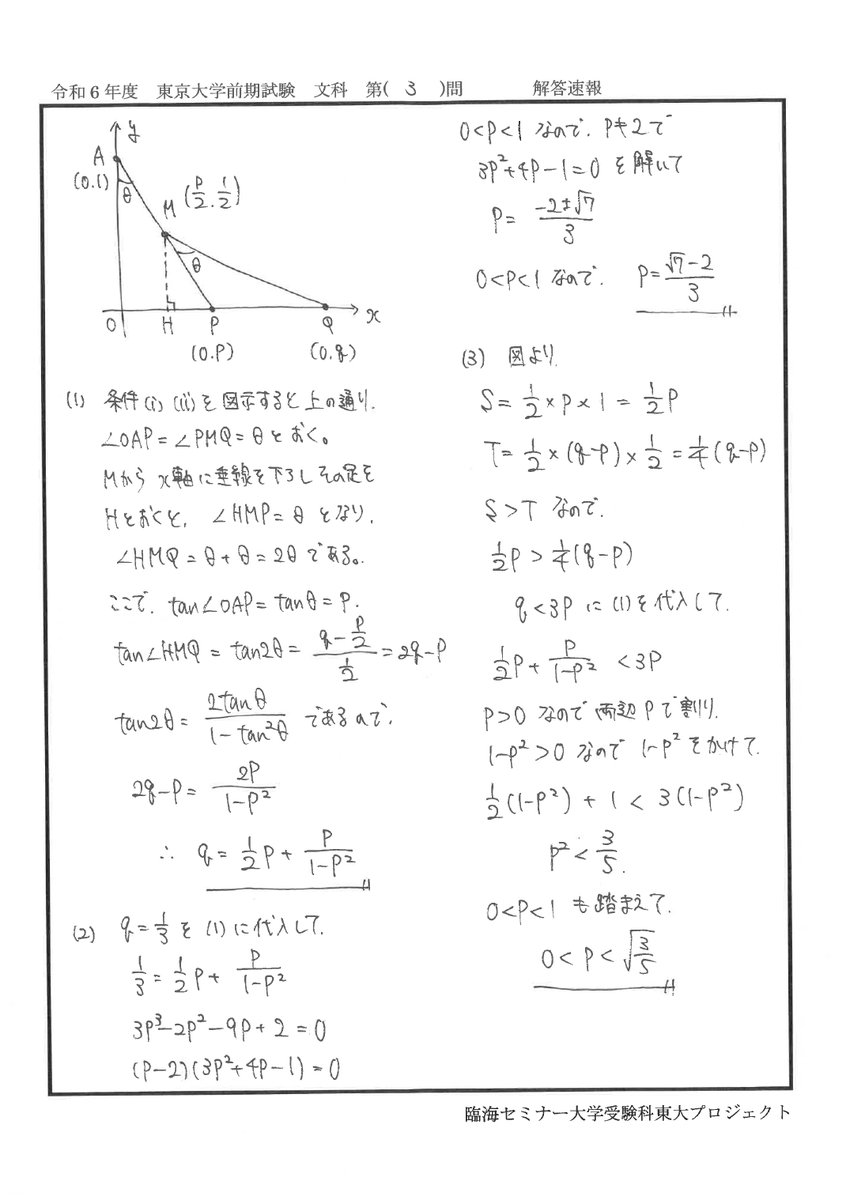 令和6年度 東京大学前期試験 文科 第( 3 )問 解答速報
y
A
(0.1)
θ
M (p/2.1/2)
θ
O H P Q x
(0.p) (0.q)
(1) 条件(i)(ii)を図示すると上の通り.
∠OAP=∠PMQ=θとおく。
Mからx軸に垂線を下ろしその足を
Hとおくと, ∠HMP=θとなり,
∠HMQ=θ+θ=2θである。
ここで, tan∠OAP=tanθ=P.
tan∠HMQ=tan2θ=(q-p/2)/(1/2)=2q-p
tan2θ=2tanθ/(1-tan²θ)であるので,
2q-p=2p/(1-p²)
∴ q=1/2p+p/(1-p²)
(2) q=1/3を(1)に代入して.
1/3=1/2p+p/(1-p²)
3p³-2p²-9p+2=0
(p-2)(3p²+4p-1)=0
0<p<1なので, p≠2で
3p²+4p-1=0を解いて
p=(-2±√7)/3
0<p<1なので, p=(√7-2)/3
(3) 図より.
S=1/2×p×1=1/2p
T=1/2×(q-p)×1/2=1/4(q-p)
S>Tなので.
1/2p>1/4(q-p)
q<3pに(1)を代入して.
1/2p+p/(1-p²)<3p
p>0なので両辺pで割り.
1-p²>0なので1-p²をかけて.
1/2(1-p²)+1<3(1-p²)
p²<3/5.
0<p<1も踏まえて.
0<p<√(3/5)
臨海セミナー大学受験科東大プロジェクト